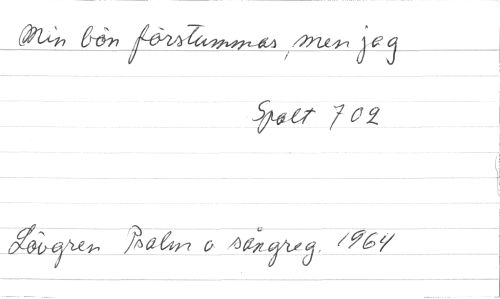 Min bön förstummas, men jag
Spalt 702
Lövgren Psalm o sångreg. 1964